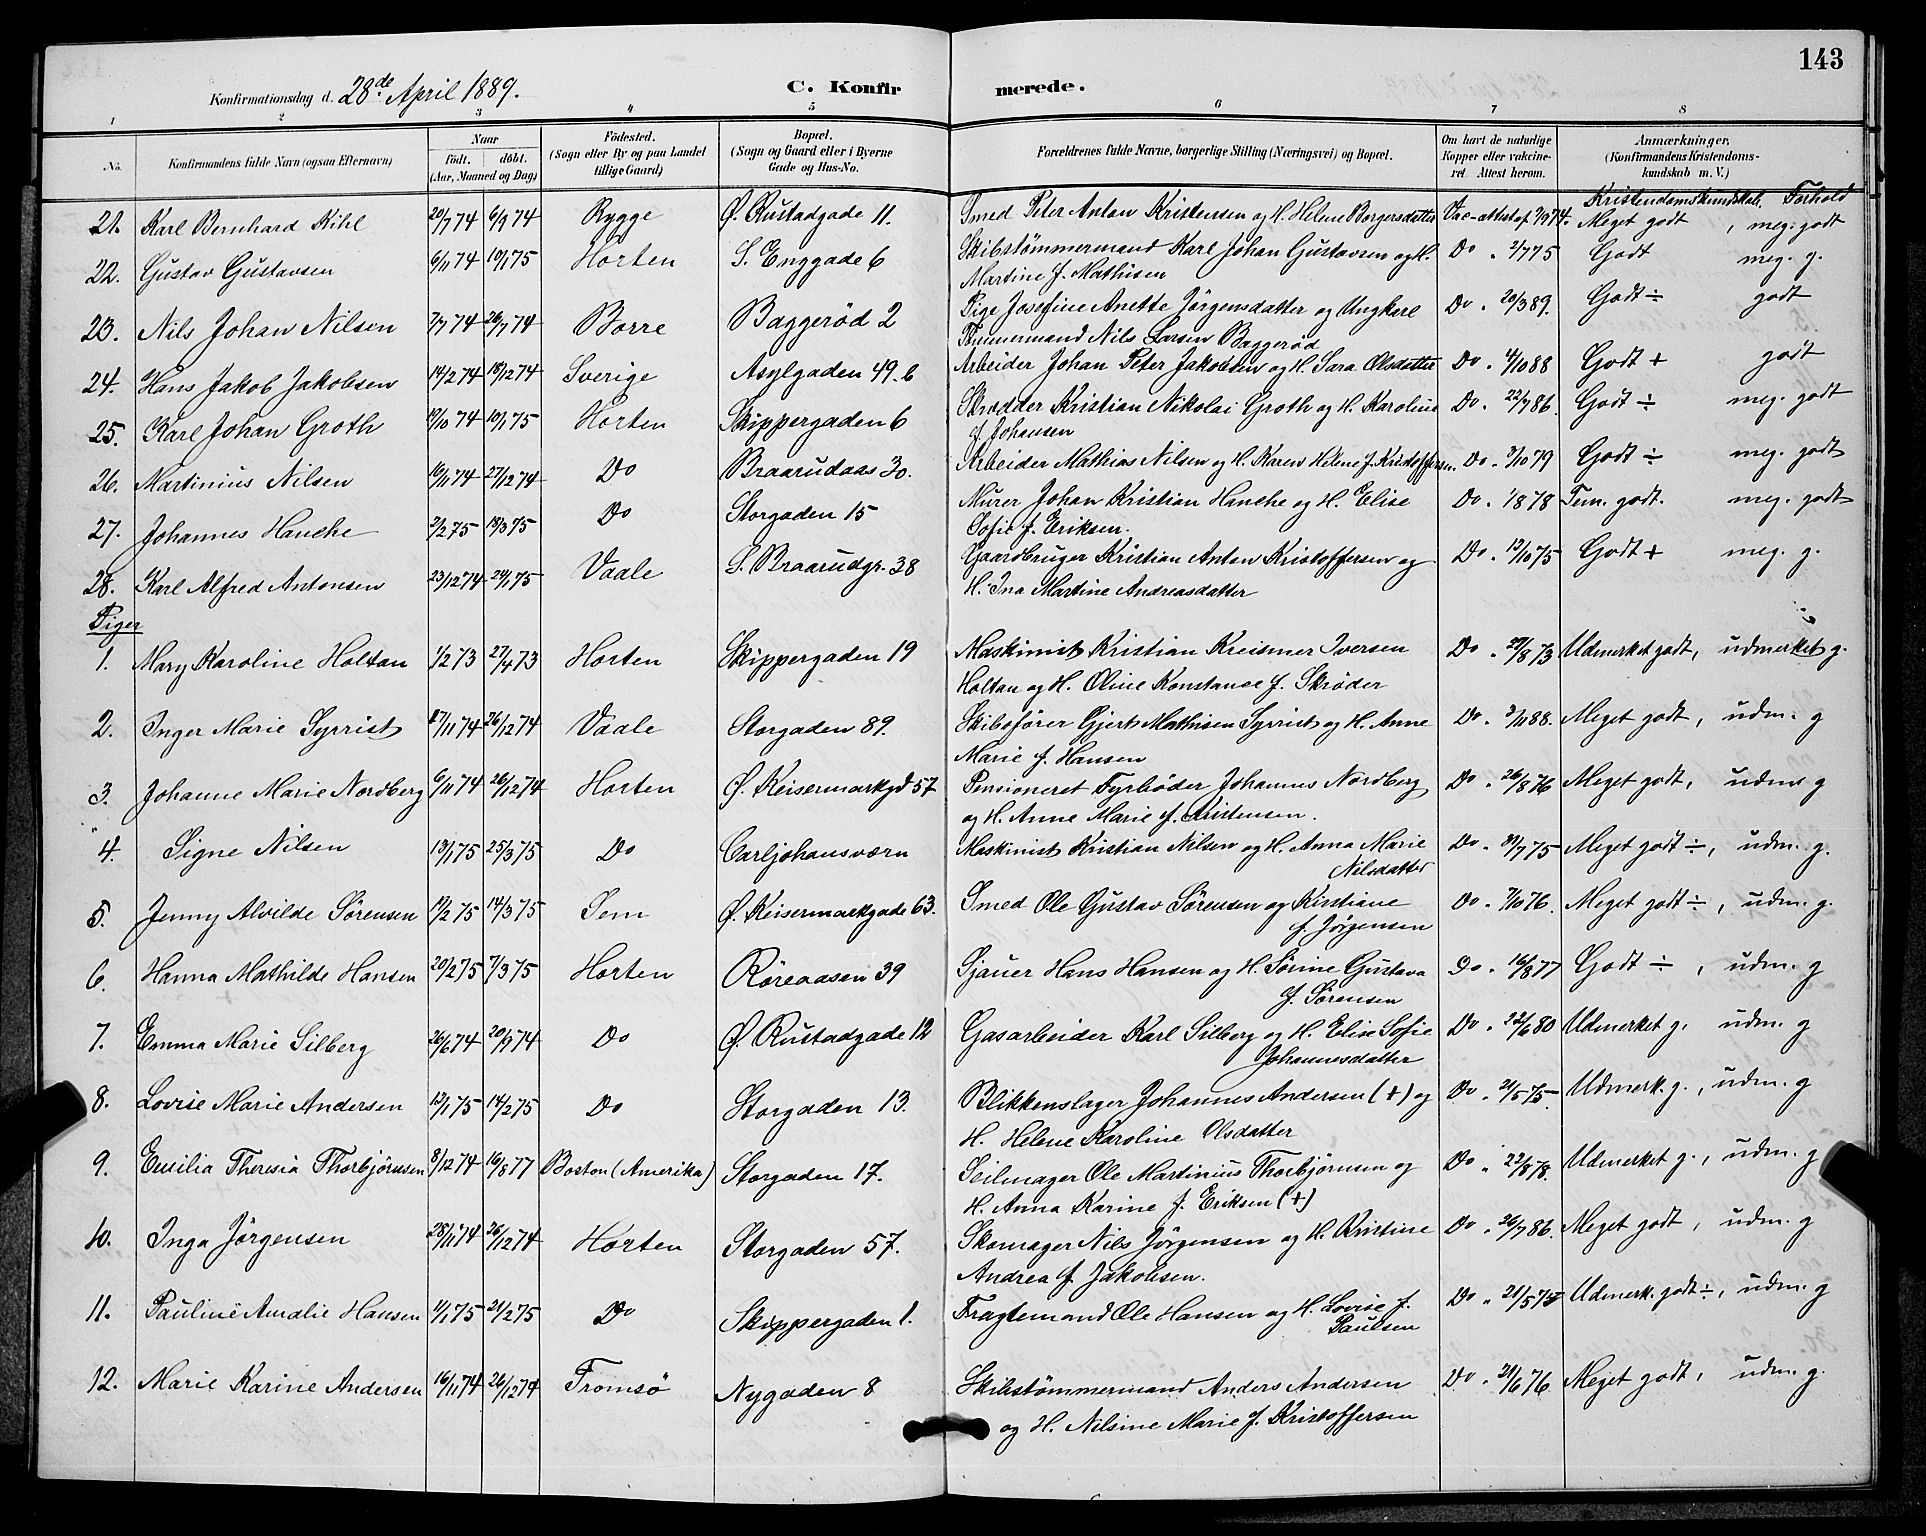 143
Konfirmationsdag d. 28de April 1889. C. Konfirmerede.
1 2 3 4 5 6 7 8
No. Konfirmandens fulde Navn (ogsaa Efternavn) Naar født. døbt. (Aar, Maaned og Dag) Fødested. (Sogn eller By og paa Landet tillige Gaard) Bopæl. (Sogn og Gaard eller i Byerne Gade og Hus-No. Forældrenes fulde Navne, borgerlige Stilling (Næringsvei) og Bopæl. Om havt de naturlige Kopper eller vakcineret. Attest herom. Anmærkninger. (Konfirmandens Kristendomskundskab m. V.)
Kristendomskundskab, Forhold
21. Karl Bernhard Kihl 20/7 74 6/9 74 Rygge Ø. Rustadgade 11. Smed Peter Anton Kristensen og H. Helene Borgersdatter Vac-attest af 7/9 74. Meget godt, meg. godt
22. Gustav Gustavsen 6/11 74 10/1 75 Horten S. Enggade 6 Skibstømmermand Karl Johan Gustavsen og H. Do " 2/7 75 Godt meg. g.
Martine f. Mathisen
23. Nils Johan Nilsen 7/7 74 26/7 74 Borre Baggerød 2 Pige Josefine Anette Jörgensdatter og Ungkarl Do " 20/3 89. Godt ÷ godt
Tømmermand Nils Larsen Baggerød
24. Hans Jakob Jakobsen 14/2 74 18/12 74 Sverige Asylgaden 49.b Arbeider Johan Peter Jakobsen og H. Sara Olsdatter Do " 4/10 88 Godt + godt
25. Karl Johan Groth 19/10 74 10/1 75 Horten Skippergaden 6 Skrædder Kristian Nikolai Groth og H. Karoline Do " 22/7 86. Godt ÷ meg. godt
f. Johansen
26. Martinius Nilsen 16/11 74 27/12 74 Do Braarudaas 30. Arbeider Mathias Nilsen og H. Karen Helene f. Kristoffersen Do " 3/10 79 Godt ÷ meg. godt
27. Johannes Hanche 2/2 75 18/3 75 Do Storgaden 15 Murer Johan Kristian Hanche og H. Elise Do " 1/8 78 Tem. godt. meg. godt
Sofie f. Eriksen.
28. Karl Alfred Antonsen 23/12 74 24/1 75 Vaale S. Braarudgr. 38 Gaardbruger Kristian Anton Kristoffersen og Do " 12/10 75 Godt + meg. g.
H. Ina Martine Andreasdatter
Piger
1. Mary Karoline Holtan 1/2 73 27/4 73 Horten Skippergaden 19 Maskinist Kristian Kreismer Iversen Do " 27/8 73 Udmerket godt, udmerket g.
Holtan og H. Oline Konstance f. Skrøder
2. Inger Marie Syrrist 17/11 74 26/12 74 Vaale Storgaden 89. Skibsfører Gjert Mathisen Syrrist og H. Anne Do " 3/11 88. Meget godt, udm. g
Marie f. Hansen
3. Johanne Marie Nordberg 6/11 74 26/12 74 Horten Ø. Keisermarkgd 57 Pensioneret Fyrbøder Johannes Nordberg Do " 26/8 76 Meget godt, udm g
og H. Anne Marie f. Kristensen.
4. Signe Nilsen 13/1 75 25/3 75 Do Carljohansværn Maskinist Kristian Nilsen og H. Anna Marie Do " 30/7 75 Meget godt ÷, udm. g.
Nilsdatter
5. Jenny Alvilde Sørensen 17/2 75 14/3 75 Sem Ø. Keisermarkgade 63. Smed Ole Gustav Sørensen og Kristiane Do " 7/10 76. Meget godt ÷, udm. g.
f. Jørgensen
6. Hanna Mathilde Hansen 20/2 75 7/3 75 Horten Røreaasen 39 Sjauer Hans Hansen og H. Sørine Gustava Do " 16/8 77 Godt ÷, udm. g
f. Sørensen
7. Emma Marie Silberg 26/6 74 20/9 74 Do Ø. Rustadgade 12 Gasarbeider Karl Silberg og H. Elise Sofie Do " 22/6 80 Udmerket g. udm. g
Johannesdatter
8. Lovise Marie Andersen 13/1 75 14/2 75 Do Storgaden 13. Blikkenslager Johannes Andersen (+) og Do " 21/5 75. Udmerk. g., udm. g
H. Helene Karoline Olsdatter
9. Emilia Theresia Thorbjørnsen 8/12 74 16/8 77 Boston (Amerika) Storgaden 17. Seilmager Ole Martinius Thorbjørnsen og Do " 22/8 78. Udmerket g., udm. g
H. Anna Karine f. Eriksen (+)
10. Inga Jørgensen 28/11 74 26/12 74 Horten Storgaden 57. Skomager Nils Jørgensen og H. Kristine Do " 26/7 86. Meget godt, udm. g
Andrea f. Jakobsen.
11. Pauline Amalie Hansen 11/1 75 21/2 75 Do Skippergaden 1. Fragtemand Ole Hansen og H. Lovise f. Do " 21/5 75 Udmerk. godt ÷, udm. g
Paulsen
12. Marie Karine Andersen 16/11 74 26/12 74 Tromsø Nygaden 8 Skibstømmermand Anders Andersen Do " 21/6 76. Meget godt, udm. g.
og H. Nilsine Marie f. Kristoffersen